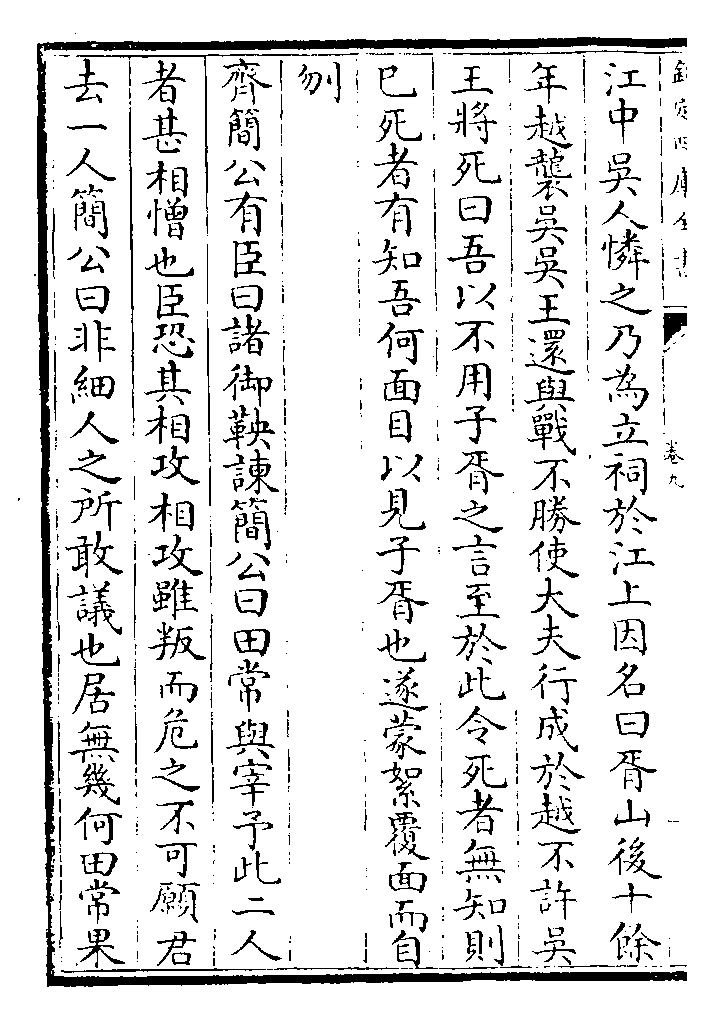 欽定四庫全書
卷九
江中吳人憐之乃為立祠於江上因名曰胥山後十餘
年越襲吳吳王還與戰不勝使大夫行成於越不許吳
王將死曰吾以不用子胥之言至於此令死者無知則
已死者有知吾何面目以見子胥也遂蒙絮覆面而自
刎
齊簡公有臣曰諸御鞅諫簡公曰田常與宰予此二人
者甚相憎也臣恐其相攻相攻雖叛而危之不可願君
去一人簡公曰非細人之所敢議也居無幾何田常果